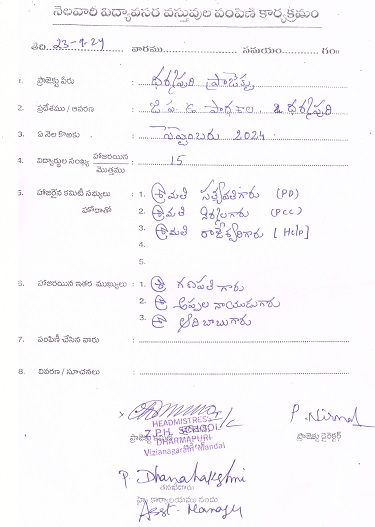 నెలవారీ విద్యావసర వస్తువుల పంపిణీ కార్యక్రమం
తేది. 23-9-24 వారము సమయం గం॥
1. ప్రాజెక్టు పేరు : ధర్మపురి ప్రాజెక్టు
2. ప్రదేశము / ఆవరణ : జి.ప.ఉ. పాఠశాల, ధర్మపురి
3. ఏ నెల కొఱకు : సెప్టెంబరు 2024
4. విద్యార్థుల సంఖ్య హాజరయిన / మొత్తము : 15
5. హాజరైన కమిటీ సభ్యులు : 1. శ్రీమతి సత్యవతిగారు (PD)
హోదాతో 2. శ్రీమతి గారు (PCC)
3. శ్రీమతి రాజేశ్వరిగారు [Help]
4.
5.
6. హాజరయిన ఇతర ముఖ్యులు : 1. శ్రీ గణపతి గారు
2. శ్రీ అప్పల నాయుడుగారు
3. శ్రీ ఆదిబాబుగారు
7. పంపిణీ చేసిన వారు :
8. వివరణ / సూచనలు :
I/C
HEADMISTRESS
Z.P.H. SCHOOL
DHARMAPURI
Vizianagaram Mandal
P. Nirmal
ప్రాజెక్టు డైరెక్టర్
P. Dhanalakshmi
Asst. Manager